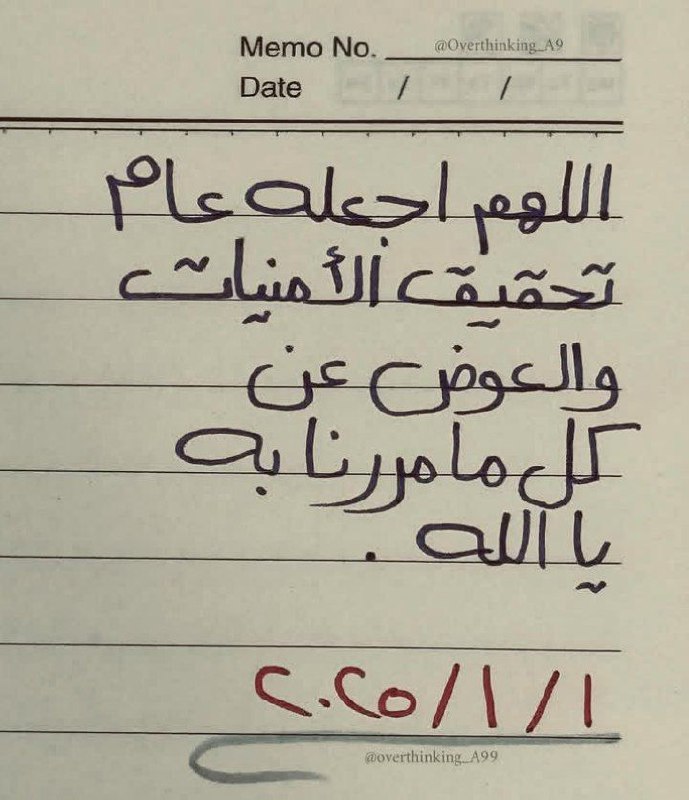 Memo No. @Overthinking_A9
Date / /
اللهم اجعله عام
تحقيق الأمنيات
والعوض عن
كل ما مررنا به
يا الله .
٢٠٢٥/١/١
@overthinking_A99